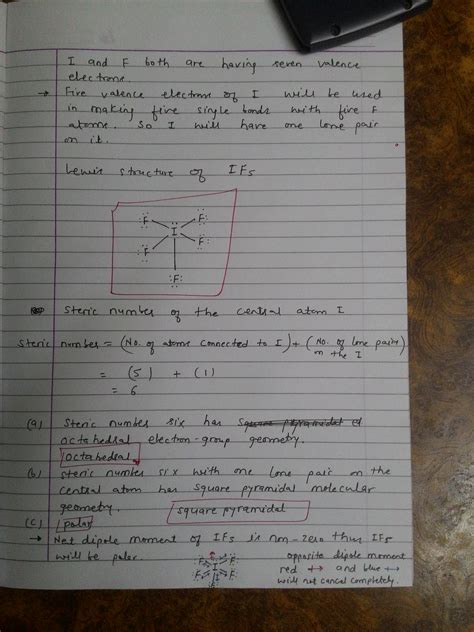 I and F both are having seven valence
electrons.
→ Five valence electron of I will be used
in making five single bonds with five F
atoms. So I will have one lone pair
on it.
Lewis structure of IF5
F F
I
F F
F
Steric number of the central atom I
Steric number = (No. of atoms connected to I) + (No. of lone pairs
on the I)
= (5) + (1)
= 6
(a) Steric number six has square pyramidal el
octahedral electron-group geometry.
octahedral
(b) Steric number six with one lone pair on the
central atom has square pyramidal molecular
geometry. square pyramidal
(c) polar
→ Net dipole moment of IF5 is non-zero thus IF5
will be polar.
F I F
F F
F
opposite dipole moment
red ↔ and blue ↔
will not cancel completely.